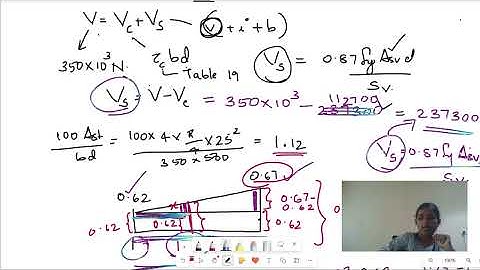 V = Vc + Vs — (V + i + b)
350×10³ N. τc bd
Table 19
Vs = 0.87 fy Asv d / Sv
Vs = V - Vc = 350×10³ - 112700 = 237300
100 Ast / bd = 100×4×π/4×25² / 350×500 = 1.12
Vs = 0.87 fy Asv
0.62 0.67
0.67-
0.62
0.62 0.62 0.62